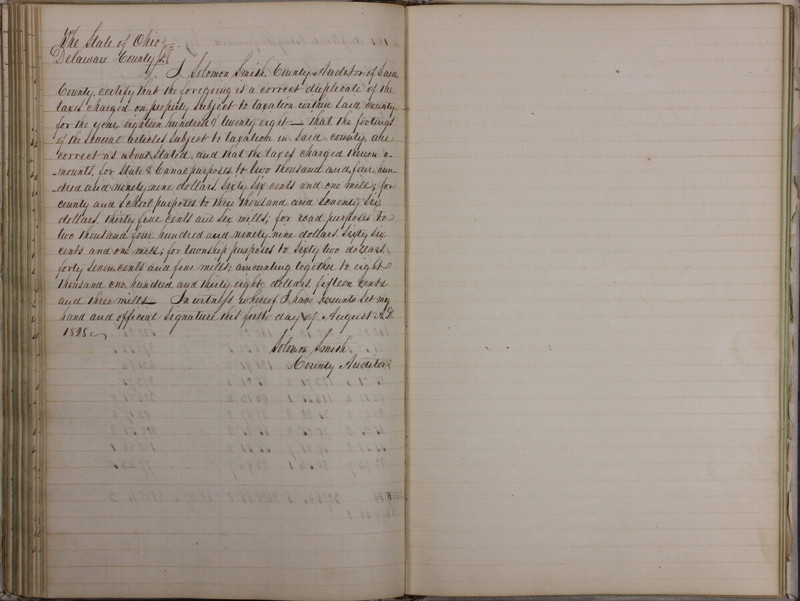 The State of Ohio
Delaware County ss
I Solomon Smith County Auditor of said
County, certify that the foregoing is a correct duplicate of the
taxes charged on property subject to taxation within said county
for the year eighteen hundred & twenty eight — that the footings
of the several articles subject to taxation in said county are
correct as above stated, and that the taxes charged thereon a-
-mounts, for State & Canal purposes to two thousand and four hun-
-dred and ninety nine dollars sixty six cents and one mill; for
county and School purposes to three thousand and seventy six
dollars thirty five cents and six mills; for road purposes to
two thousand four hundred and ninety nine dollars sixty six
cents and one mill; for township purposes to sixty two dollars
forty seven cents and five mills; amounting together to eight
thousand one hundred and thirty eight dollars fifteen cents
and three mills — In witness whereof I have hereunto set my
hand and official signature this day of August A.D.
1828
Solomon Smith
County Auditor